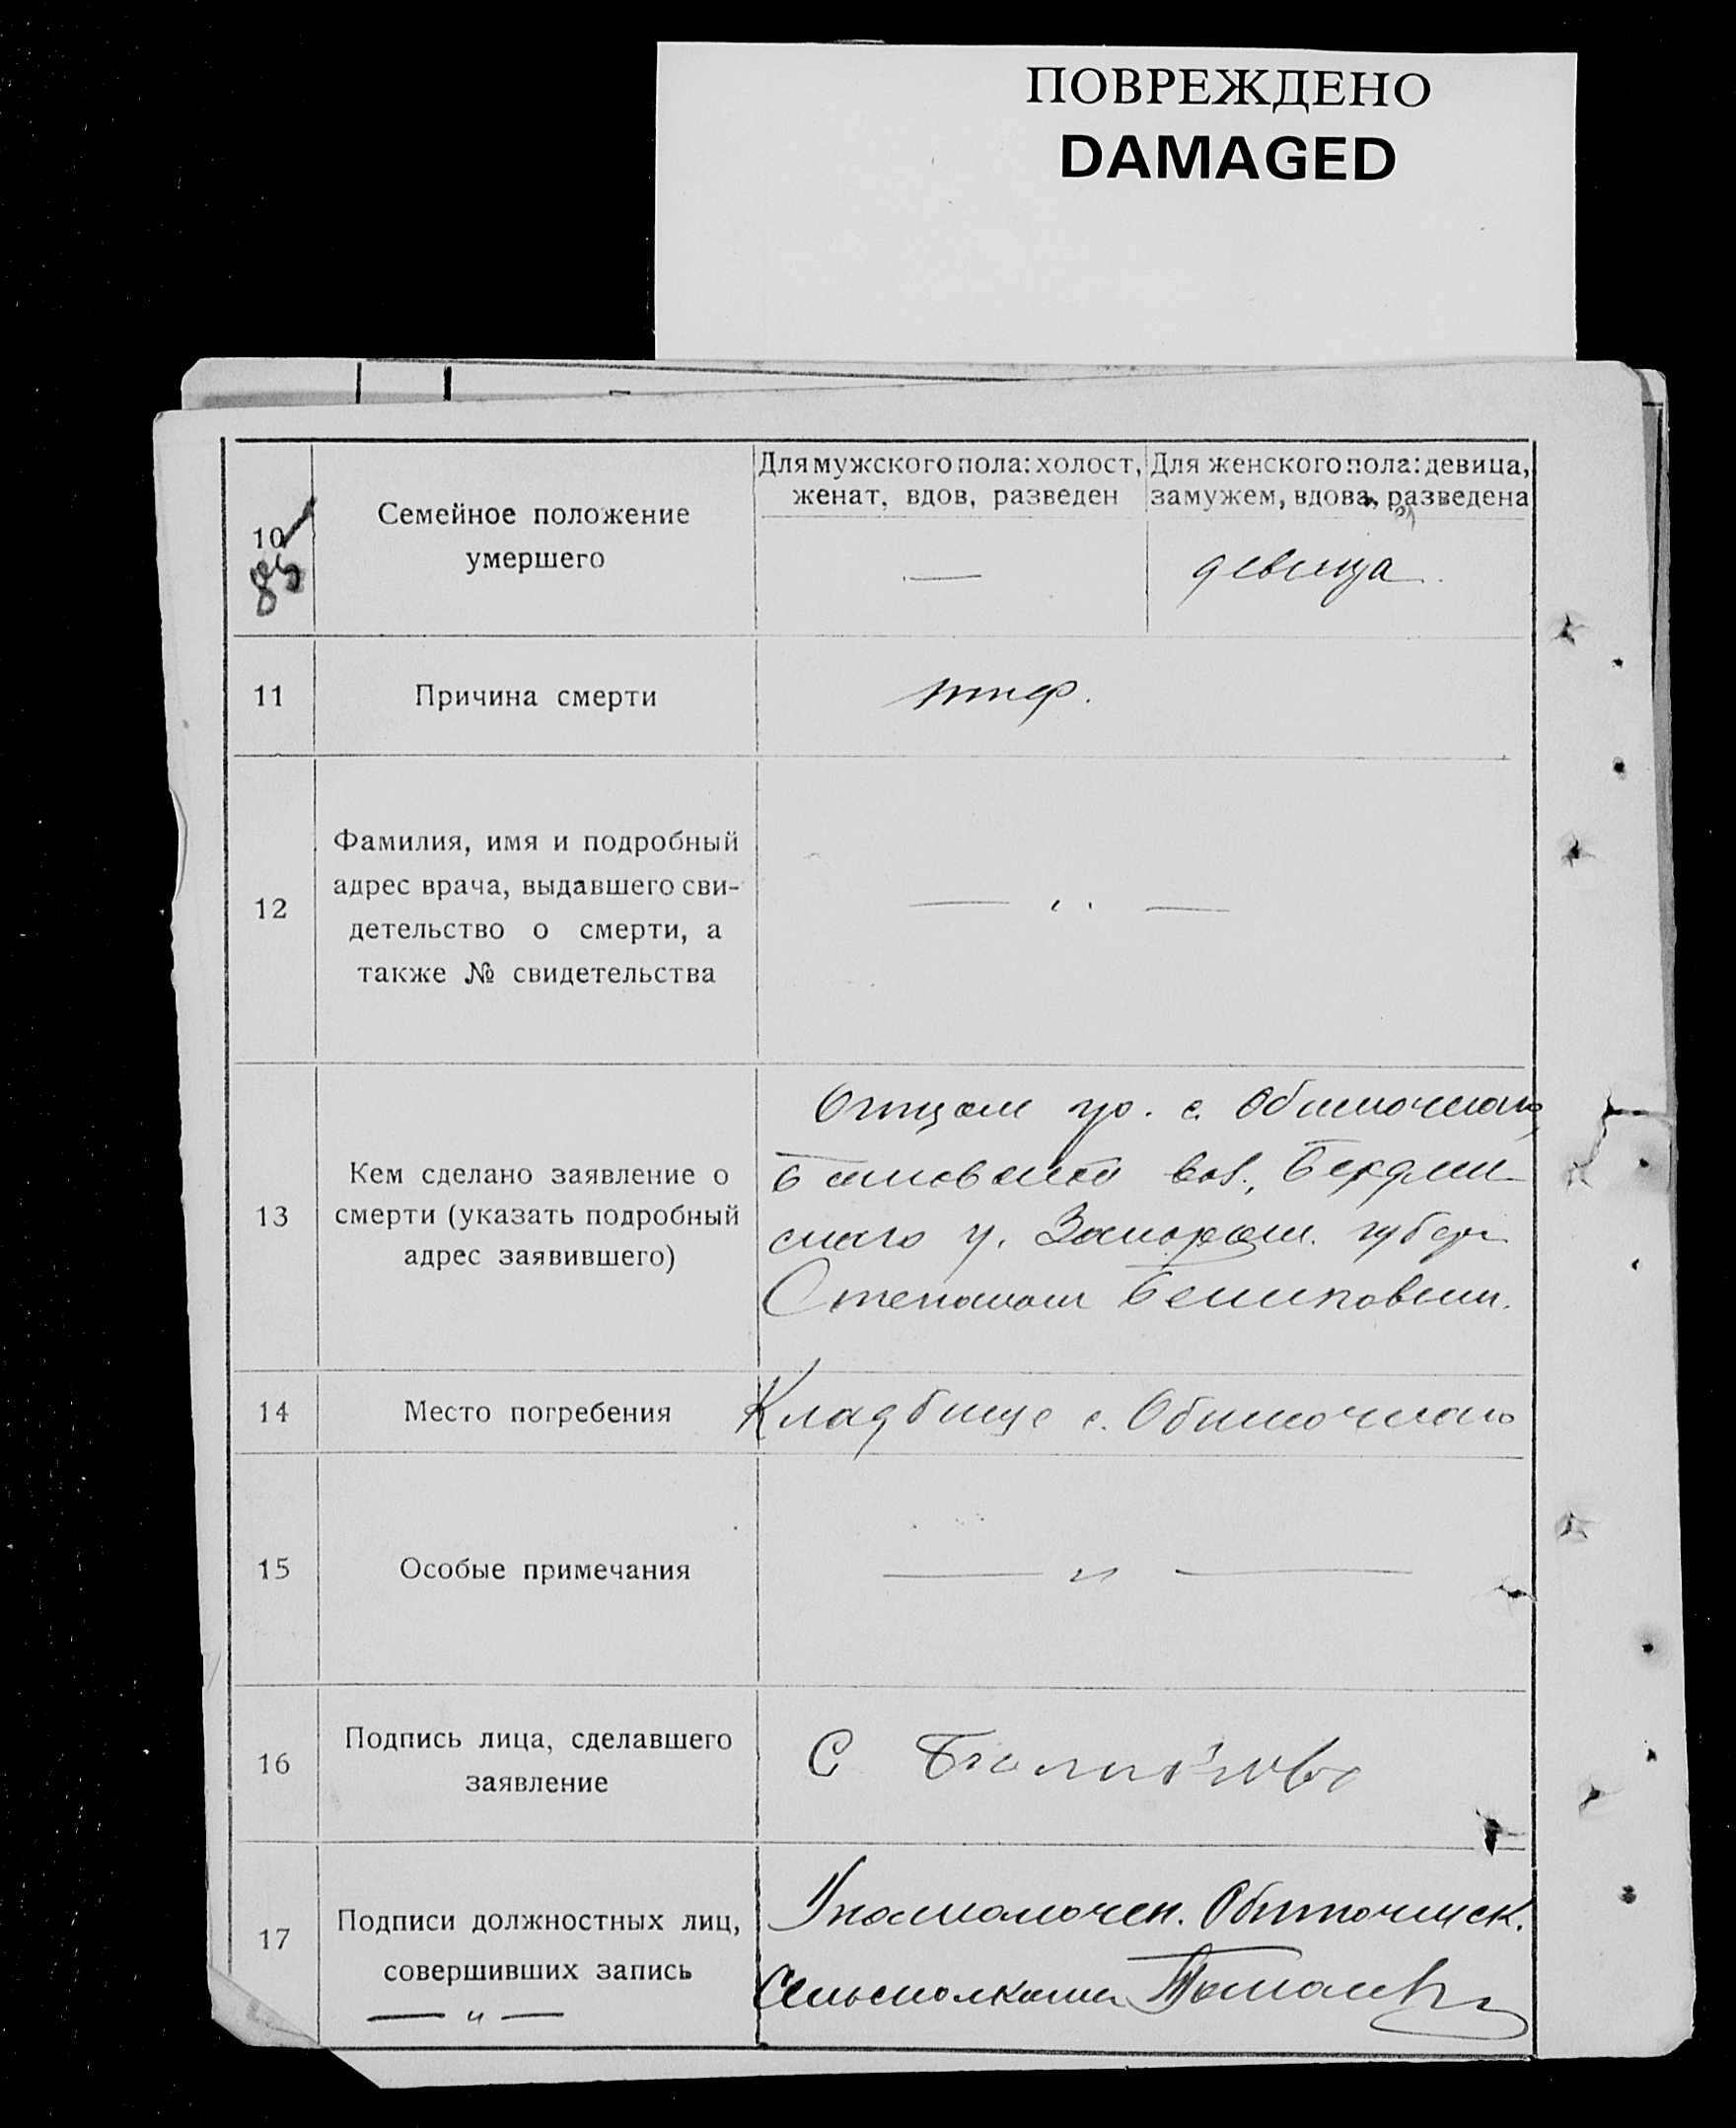 ПОВРЕЖДЕНО
DAMAGED
10
85
Семейное положение
умершего
Для мужского пола: холост,
женат, вдов, разведен
Для женского пола: девица,
замужем, вдова, разведена
—
девица
11
Причина смерти
тиф.
12
Фамилия, имя и подробный
адрес врача, выдавшего сви-
детельство о смерти, а
также № свидетельства
— " —
13
Кем сделано заявление о
смерти (указать подробный
адрес заявившего)
Отцом гр. с. Обиточного
вол., Бердян-
ского у. Запорож. губер
Степаном
14
Место погребения
Кладбище с. Обиточного
15
Особые примечания
— " —
16
Подпись лица, сделавшего
заявление
С
17
Подписи должностных лиц,
совершивших запись
— " —
Уполномочен. Обиточнск.
Сельисполкома